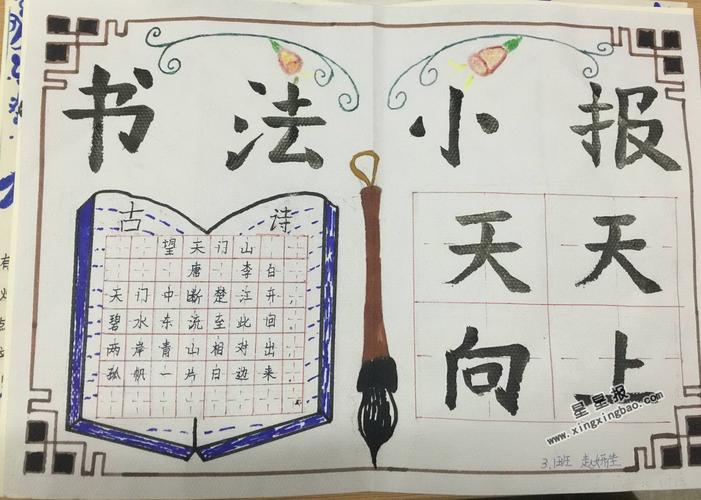 书法小报
古诗
望天门山
唐 李白
天门中断楚江开，
碧水东流至此回。
两岸青山相对出，
孤帆一片日边来。
天天
向上
星星报
www.xingxingbao.com
3.1班 赵